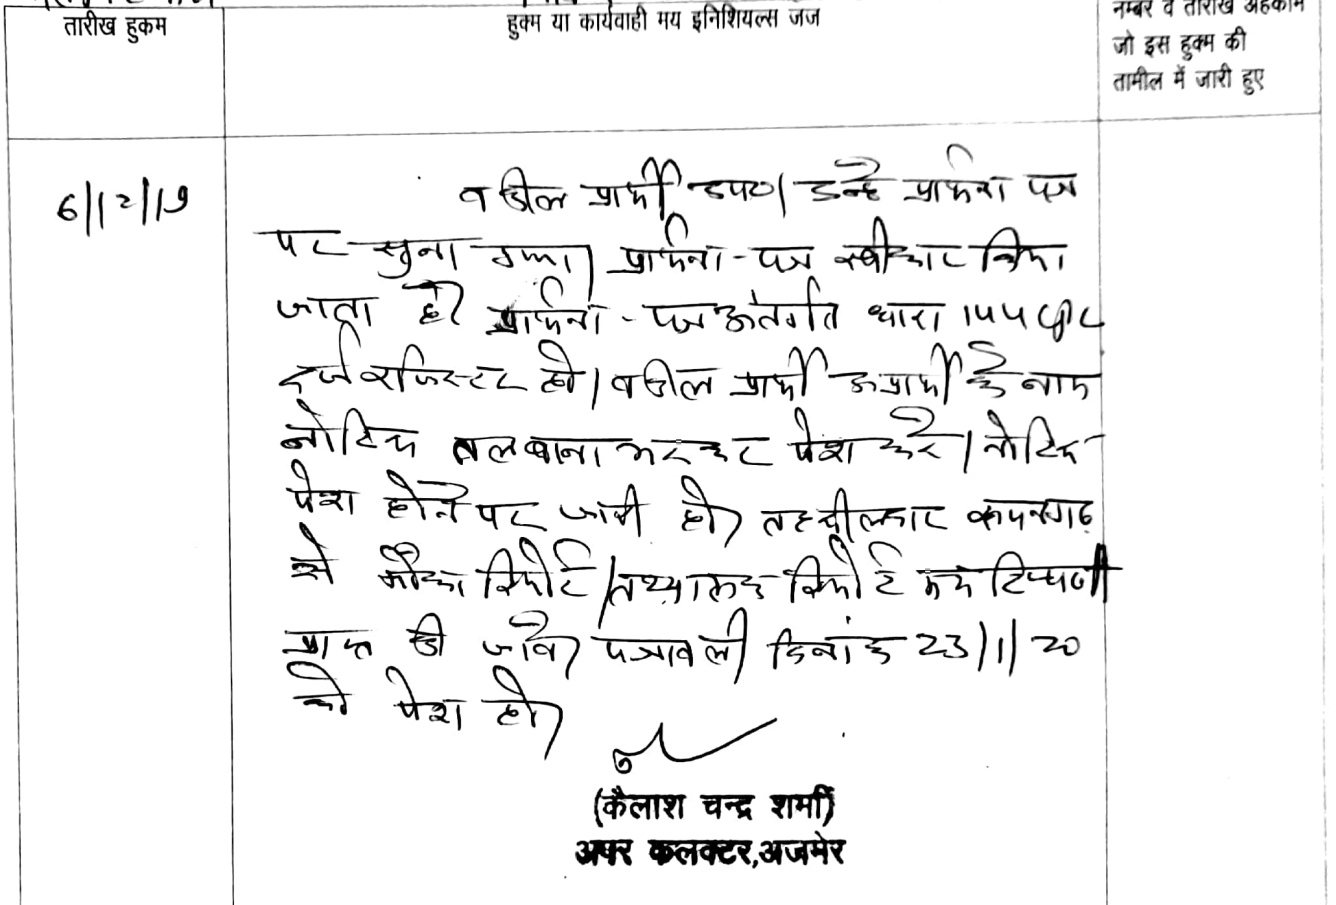 तारीख हुकम
हुक्म या कार्यवाही मय इनिशियल्स जज
नम्बर व तारीख अहकाम
जो इस हुक्म की
तामील में जारी हुए
6/12/19
वकील प्रार्थी उप०। उन्हे प्रार्थना पत्र
पर सुना गया। प्रार्थना-पत्र स्वीकार किया
जाता है। प्रार्थना-पत्र अंतर्गत धारा 144 CPC
दर्ज रजिस्टर हो। वकील प्रार्थी अप्रार्थी के नाम
नोटिस तलबाना भरकर पेश करे। नोटिस
पेश होने पर जारी हो। तहसीलदार रूपनगढ़
से मौका रिपोर्ट/तथ्यात्मक रिपोर्ट मय टिप्पणी
प्राप्त की जावे। पत्रावली दिनांक 23/1/20
को पेश हो।
(कैलाश चन्द्र शर्मा)
अपर कलक्टर,अजमेर